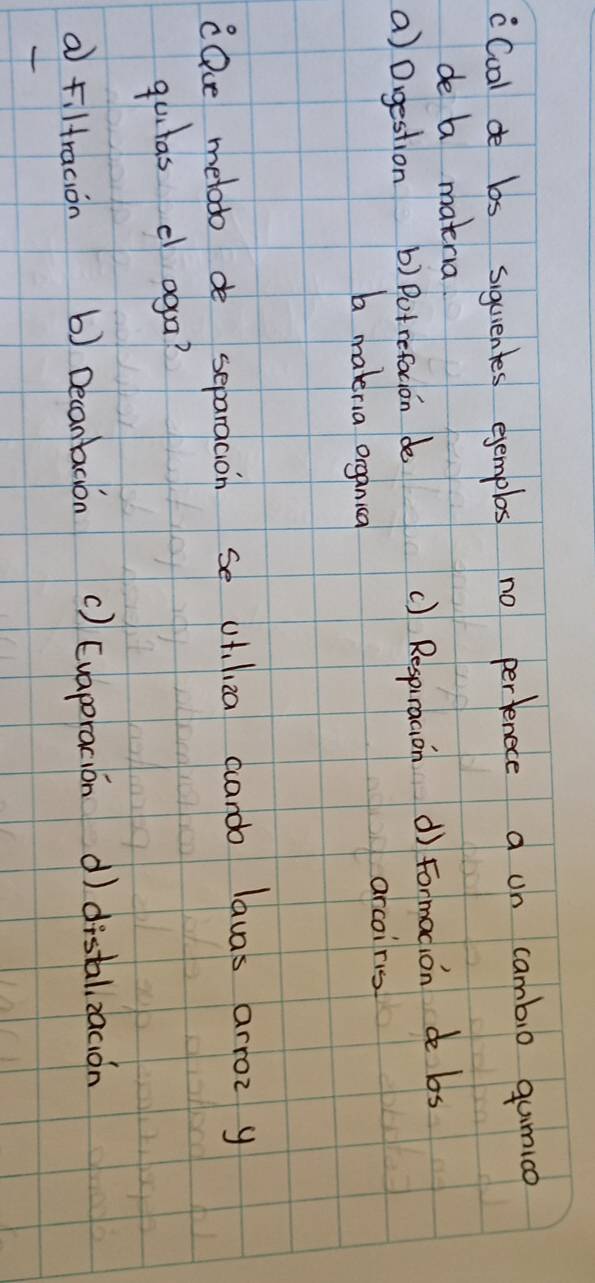 ¿Cual de los siguientes ejemplos no pertenece a un cambio quimico
de la materia.
a) Digestion b) Putrefación de c) Respiración d) Formación de los
la materia organica arcoiris
¿Que metodo de separación se utiliza cuando lavas arroz y
quitas el agua?
a) Filtración b) Decantación c) Evaporación d) distalización